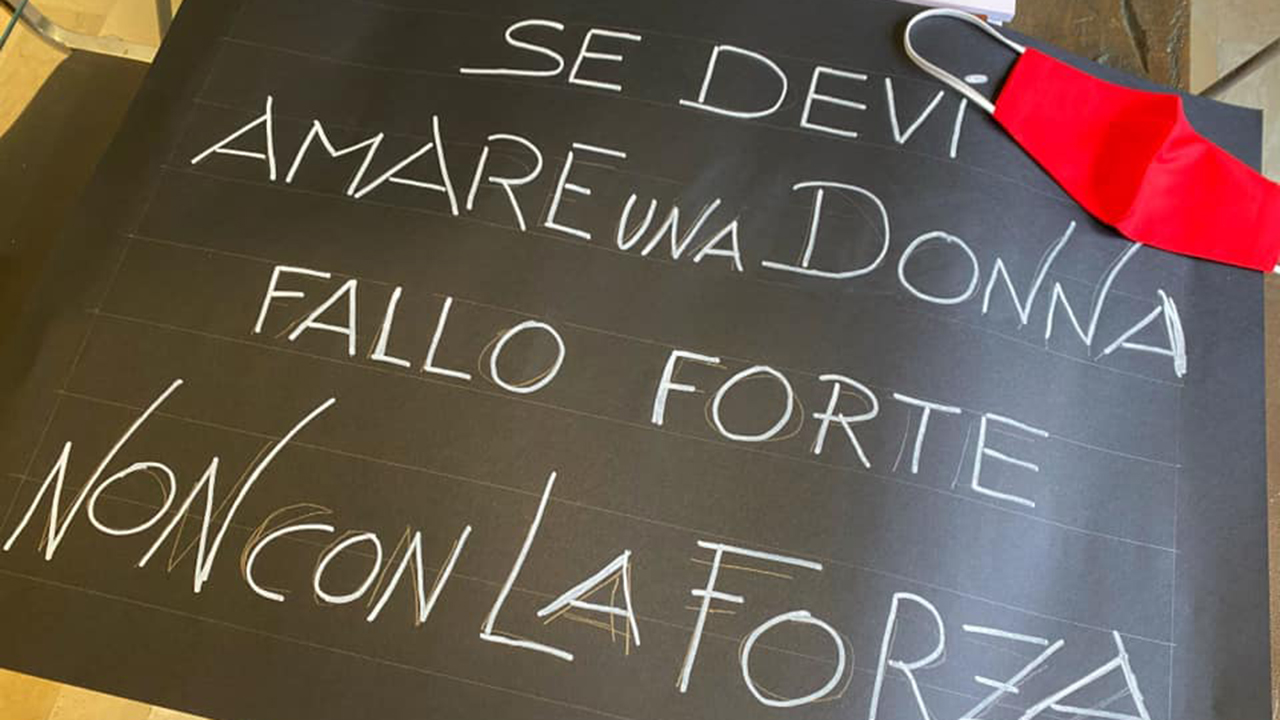 SE DEVI
AMARE UNA DONNA
FALLO FORTE
NON CON LA FORZA